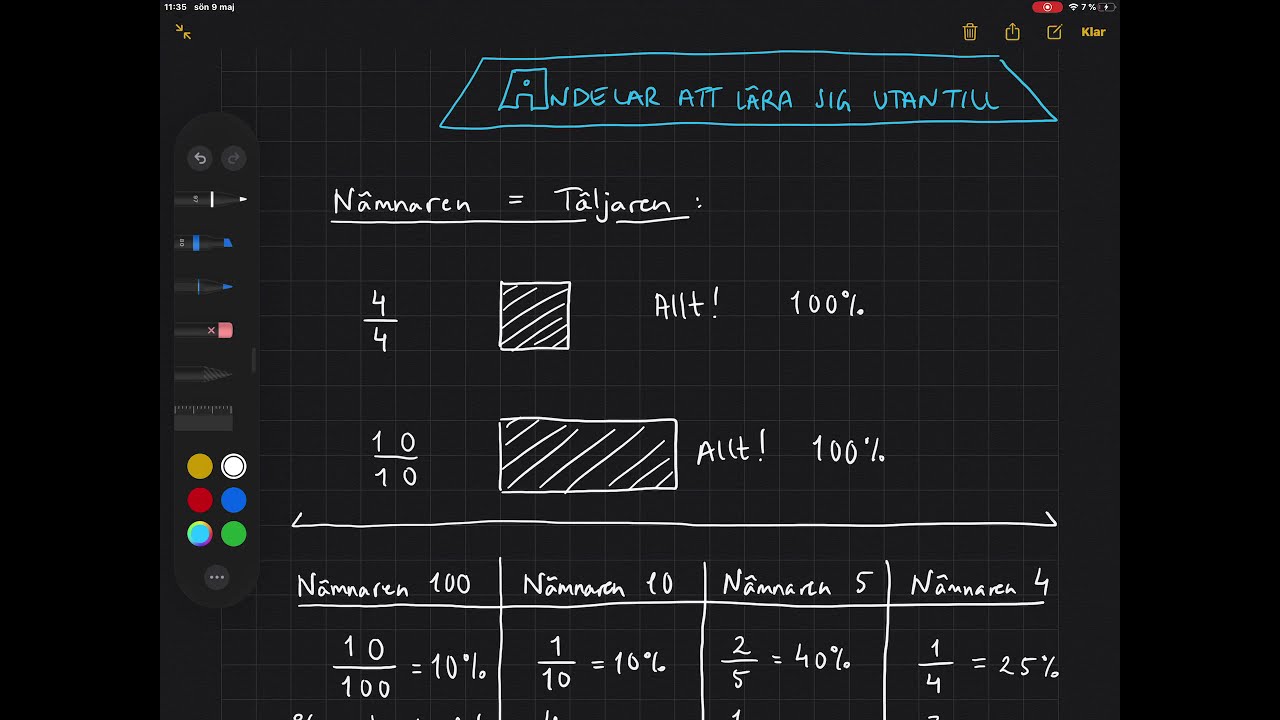 11:35 sön 9 maj
7 %
Klar
ANDELAR ATT LÄRA SIG UTANTILL
Nämnaren = Täljaren :
4/4 Allt! 100%
10/10 Allt! 100%
Nämnaren 100 Nämnaren 10 Nämnaren 5 Nämnaren 4
10/100 = 10% 1/10 = 10% 2/5 = 40% 1/4 = 25%